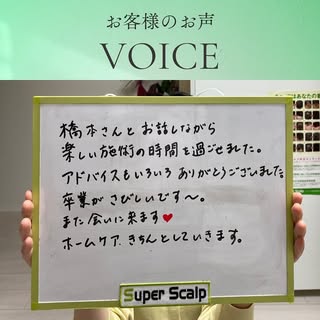 お客様のお声
VOICE
橋本さんとお話しながら
楽しい施術の時間を過ごせました。
アドバイスもいろいろありがとうございました。
卒業がさびしいです〜。
また会いに来ます♥
ホームケア、きちんとしていきます。
Super Scalp